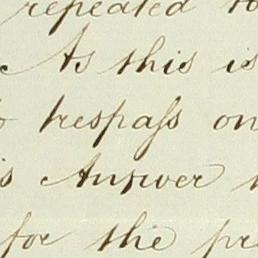 repeated to
As this is
trespaſs on
is Answer
for the pre